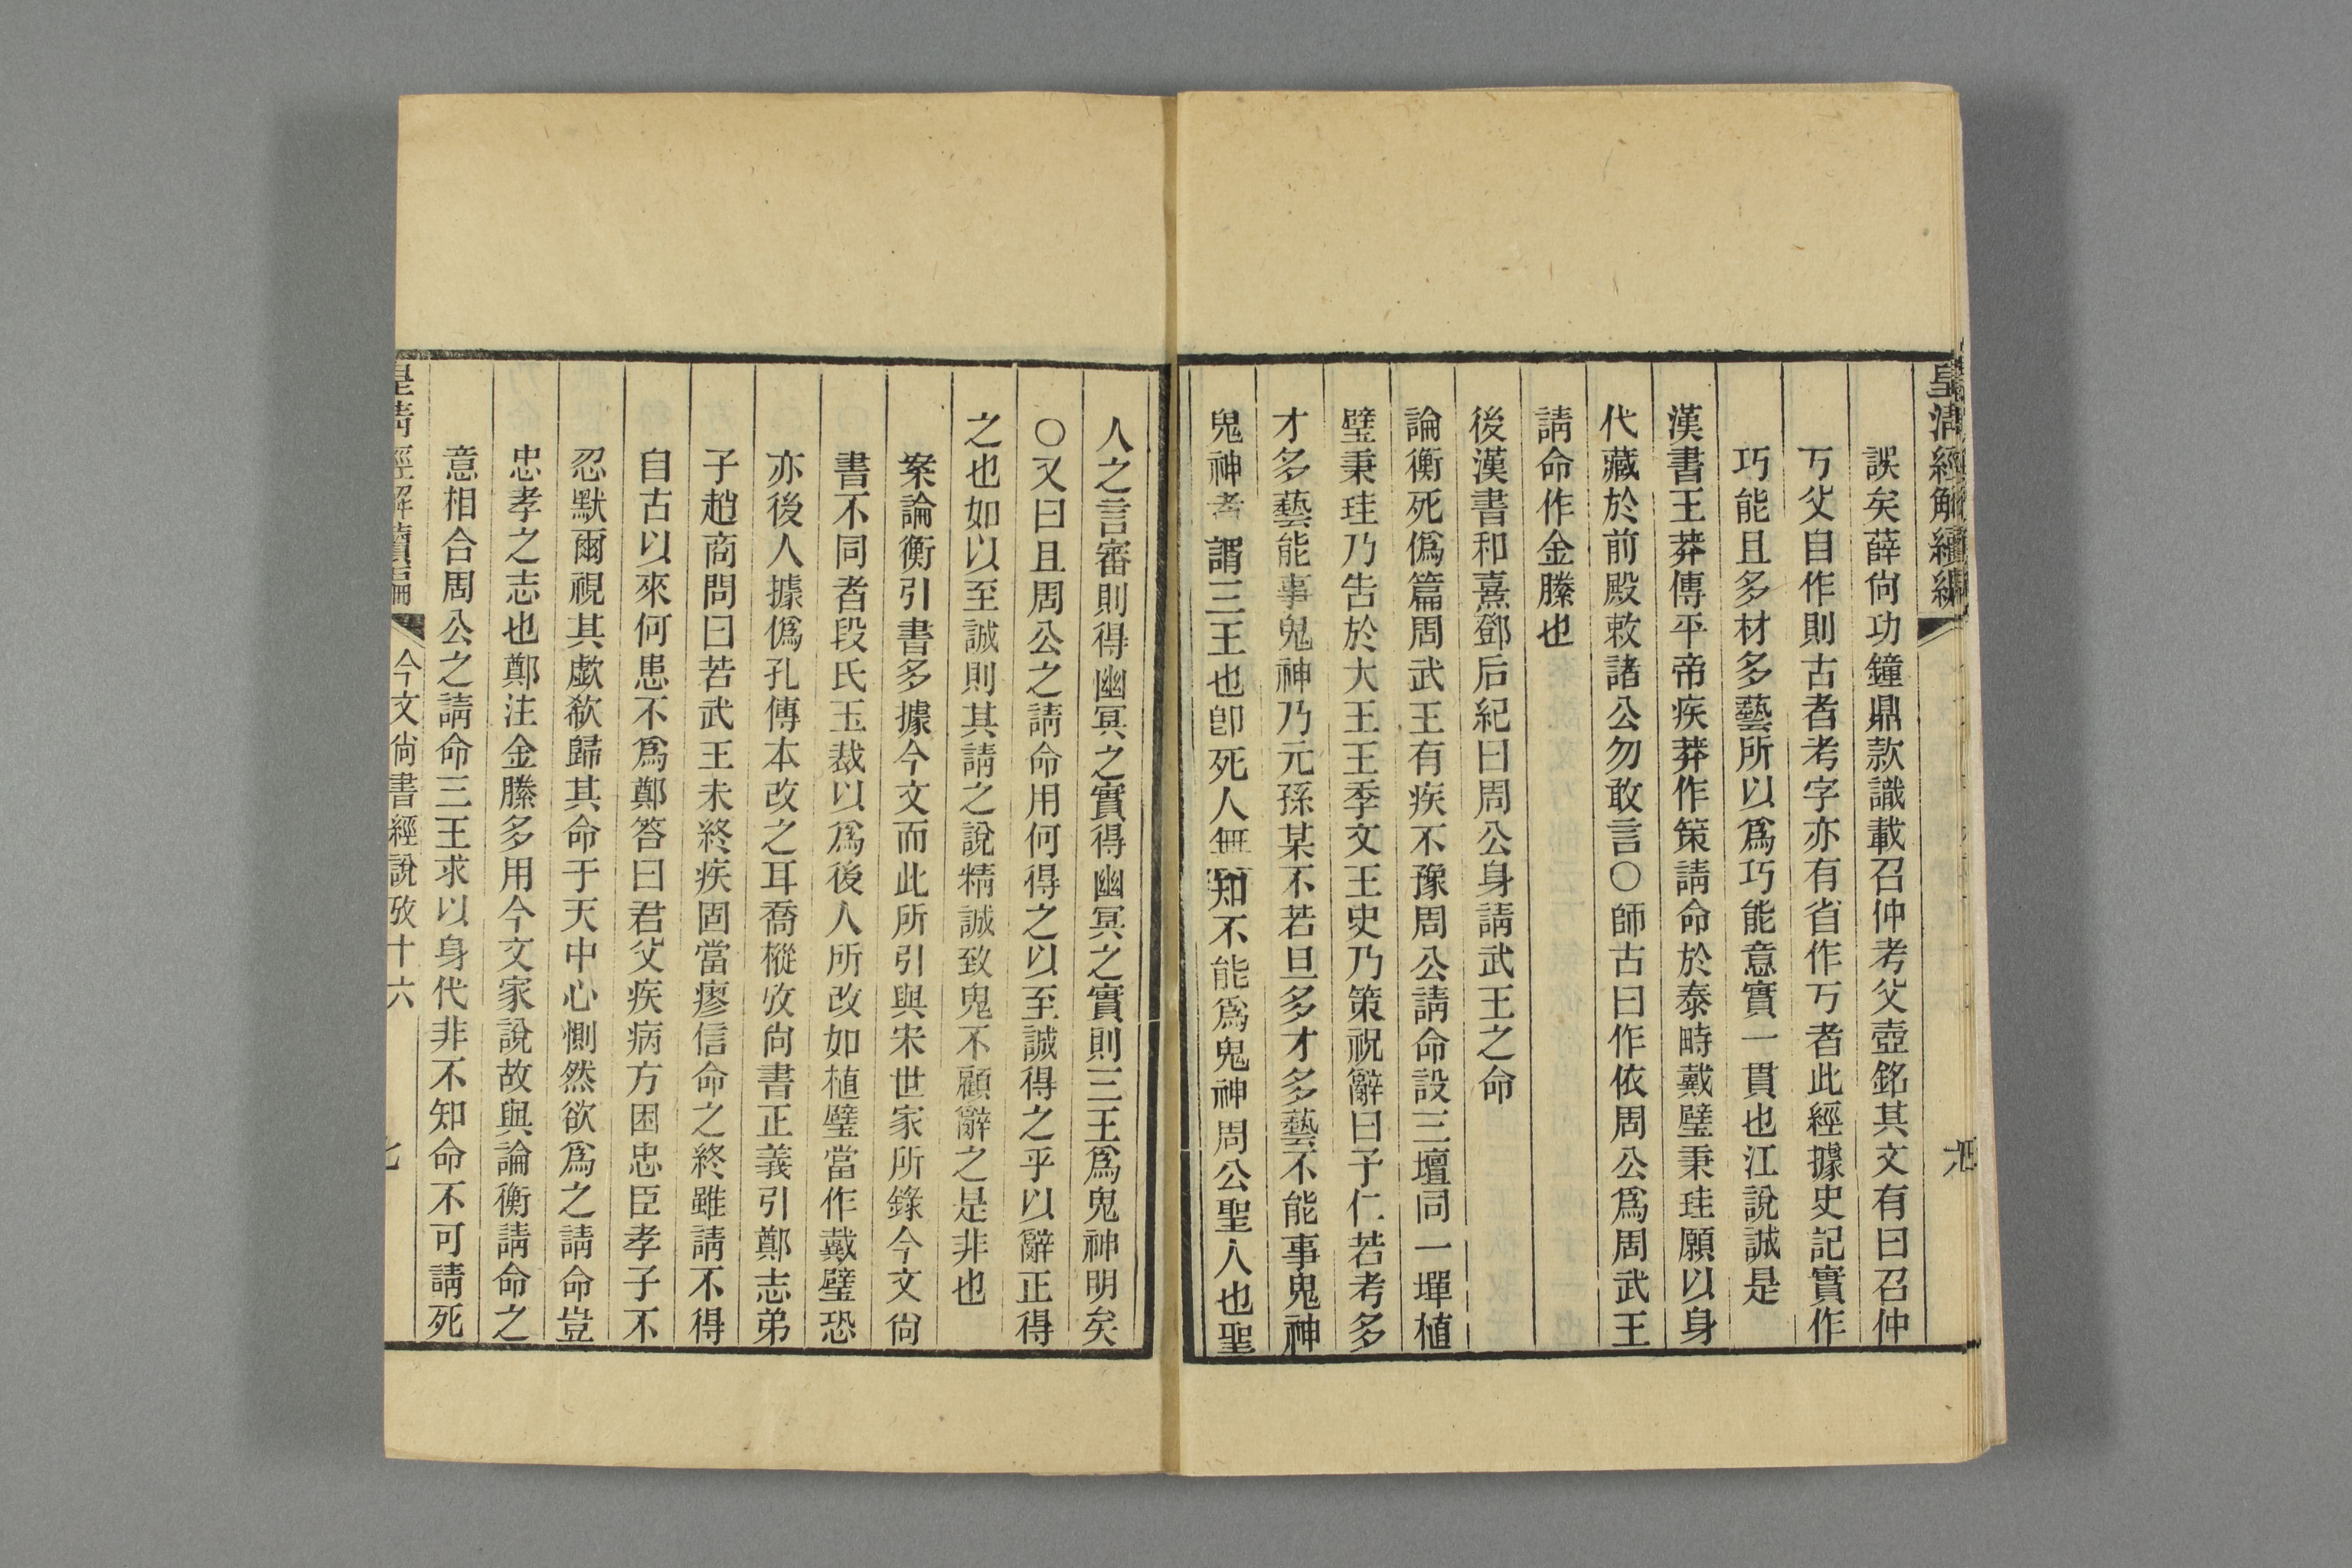 皇淸經解續編
誤矣薛尙功鐘鼎款識載召仲考父壺銘其文有曰召仲
丂父自作則古者考字亦有省作丂者此經據史記實作
巧能且多材多藝所以爲巧能意實一貫也江說誠是
漢書王莽傳平帝疾莽作策請命於泰畤戴璧秉珪願以身
代藏於前殿敕諸公勿敢言○師古曰作依周公爲周武王
請命作金縢也
後漢書和熹鄧后紀曰周公身請武王之命
論衡死僞篇周武王有疾不豫周公請命設三壇同一墠植
璧秉珪乃告於大王王季文王史乃策祝辭曰予仁若考多
才多藝能事鬼神乃元孫某不若旦多才多藝不能事鬼神
鬼神者謂三王也卽死人無知不能爲鬼神周公聖人也聖
人之言審則得幽冥之實得幽冥之實則三王爲鬼神明矣
○又曰且周公之請命用何得之以至誠得之乎以辭正得
之也如以至誠則其請之說精誠致鬼不顧辭之是非也
案論衡引書多據今文而此所引與宋世家所錄今文尙
書不同者段氏玉裁以爲後人所改如植璧當作戴璧恐
亦後人據僞孔傳本改之耳喬樅攷尙書正義引鄭志弟
子趙商問曰若武王未終疾固當瘳信命之終雖請不得
自古以來何患不爲鄭答曰君父疾病方困忠臣孝子不
忍默爾視其歔欷歸其命于天中心惻然欲爲之請命豈
忠孝之志也鄭注金縢多用今文家說故與論衡請命之
意相合周公之請命三王求以身代非不知命不可請死
皇淸經解續編 今文尙書經說攷十六 七